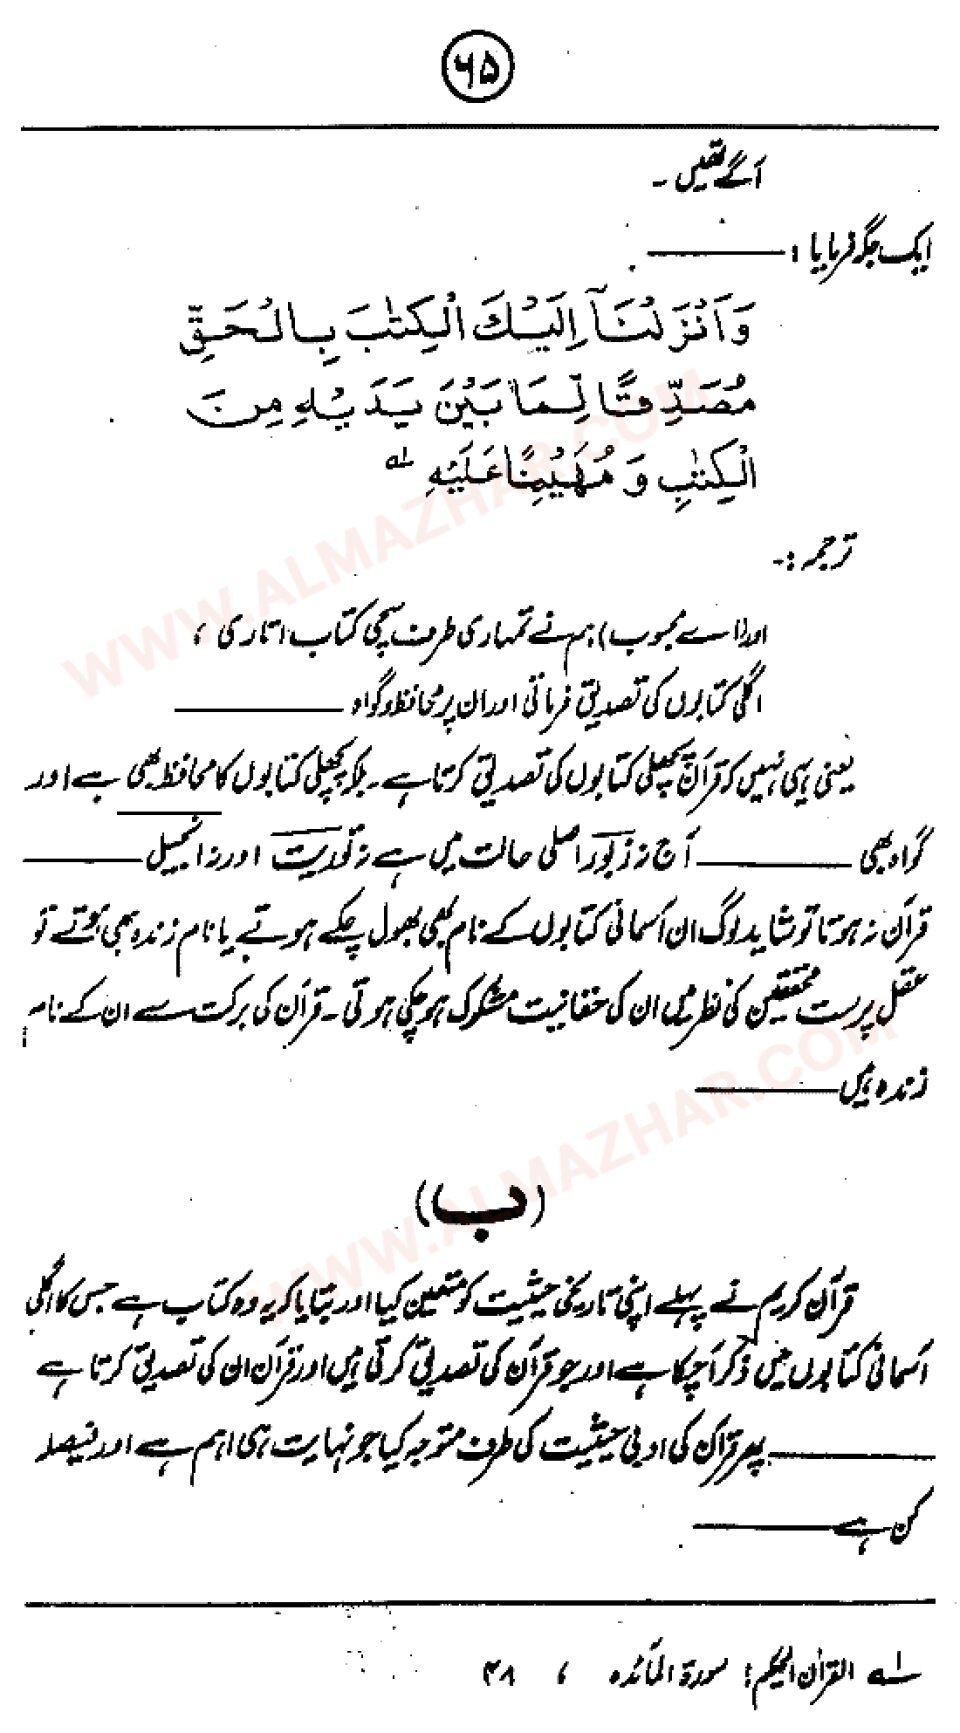 ۶۵
آگے تھیں ۔
ایک جگہ فرمایا :
وَاَنْزَلْنَآ اِلَيْكَ الْكِتٰبَ بِالْحَقِّ
مُصَدِّقًا لِّمَا بَيْنَ يَدَيْهِ مِنَ
الْكِتٰبِ وَ مُهَيْمِنًا عَلَيْهِ ؎۱
ترجمہ :۔
اور (اے محبوب) ہم نے تمہاری طرف سچی کتاب اتاری ،
اگلی کتابوں کی تصدیق فرماتی اور ان پر محافظ و گواہ
یعنی یہی نہیں کہ قرآن پچھلی کتابوں کی تصدیق کرتا ہے ۔ بلکہ پچھلی کتابوں کا محافظ بھی ہے اور
گواہ بھی آج نہ زبور اصلی حالت میں ہے نہ توریت اور نہ انجیل
قرآن نہ ہوتا تو شاید لوگ ان آسمانی کتابوں کے نام بھی بھول چکے ہوتے یا نام زندہ بھی ہوتے تو
عقل پرست محققین کی نظر میں ان کی حقانیت مشکوک ہو چکی ہوتی ۔ قرآن کی برکت سے ان کے نام
زندہ ہیں
(ب)
قرآن کریم نے پہلے اپنی تاریخی حیثیت کو متعین کیا اور بتایا کہ یہ وہ کتاب ہے جس کا اگلی
آسمانی کتابوں میں ذکر آچکا ہے اور جو قرآن کی تصدیق کرتی ہیں اور قرآن ان کی تصدیق کرتا ہے
پھر قرآن کی ادبی حیثیت کی طرف متوجہ کیا جو نہایت ہی اہم ہے اور فیصلہ
کن ہے
؎۱ القرآن الحکیم : سورۃ المآئدہ ، ۴۸
WWW.ALMAZHAR.COM
WWW.ALMAZHAR.COM